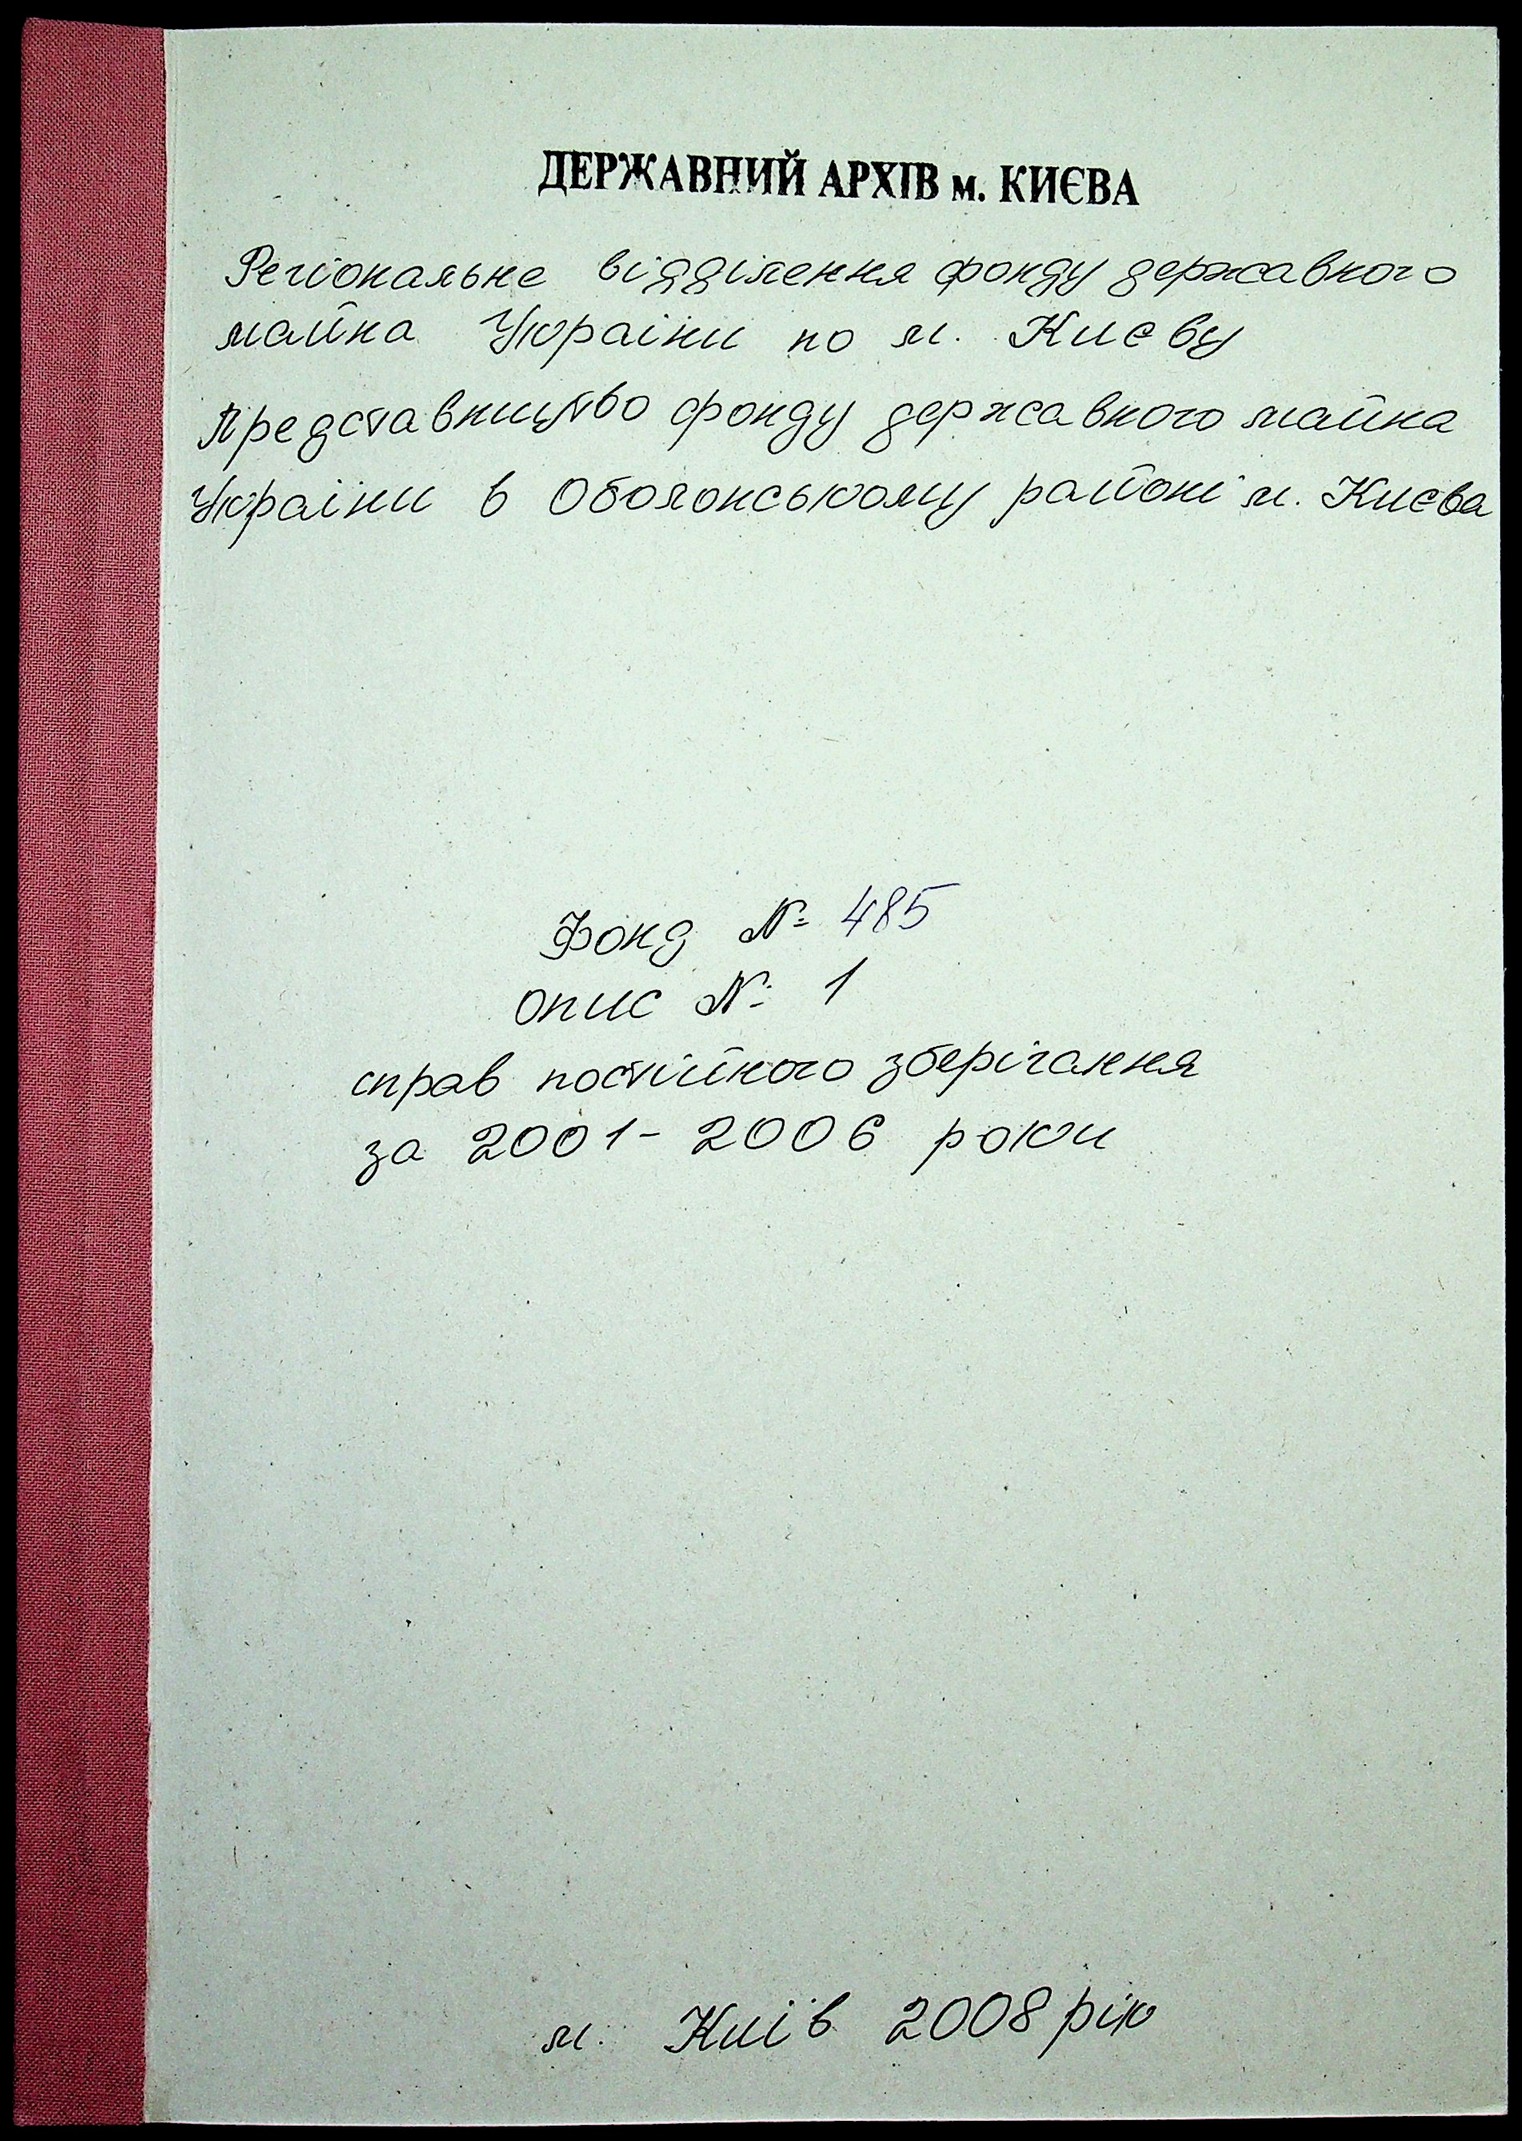 ДЕРЖАВНИЙ АРХІВ м. КИЄВА
Регіональне відділення фонду державного
майна України по м. Києву
Представництво фонду державного майна
України в Оболонському районі м. Києва
Фонд № 485
опис № 1
справ постійного зберігання
за 2001-2006 роки
м. Київ 2008 рік